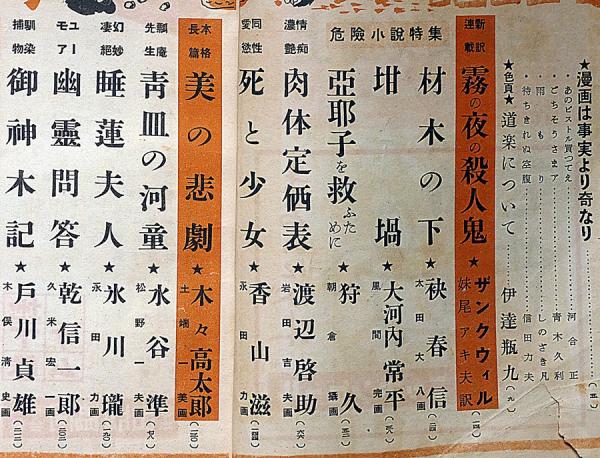 ★漫画は事実より奇なり
・あのピストル買つてえ 河合正
・ごちそうさまア 青木久利
・雨もり しのさき凡
・待ちきれぬ空腹 信田力夫
★色頁★ 道楽について 伊達瓶九
新訳連載 霧の夜の殺人鬼 ★ ザンクウィル 妹尾アキ夫訳
危險小說特集
材木の下 ★ 袂春信 太田大八画
坩堝 ★ 大河内常平 風間完画
亞耶子を救ふために ★ 狩久 朝倉攝画
情痴濃艶 肉体定価表 ★ 渡辺啓助 岩田吉夫画
同性愛慾 死と少女 ★ 香山滋 永田力画
本格長篇 美の悲劇 ★ 木々高太郎 土端一美画
瓢庵先生 靑皿の河童 ★ 水谷準 松野一夫画
幻妙凄絶 睡蓮夫人 ★ 氷川瓏 永田力画
ユーモア 幽靈問答 ★ 乾信一郎 久米宏一画
馴染捕物 御神木記 ★ 戸川貞雄 木俣淸史画